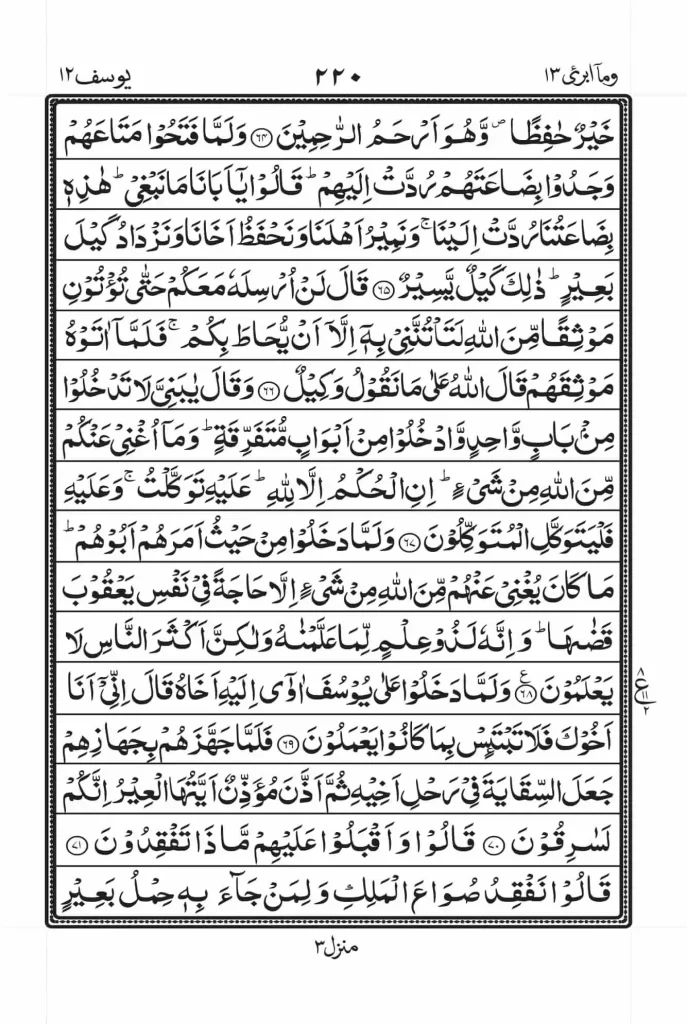 وما ابرئ ١٣ ٢٢٠ يوسف ١٢
خَيْرٌ حٰفِظًا ۪ وَّهُوَ اَرْحَمُ الرّٰحِمِيْنَ ﴿۶۴﴾ وَلَمَّا فَتَحُوْا مَتَاعَهُمْ
وَجَدُوْا بِضَاعَتَهُمْ رُدَّتْ اِلَيْهِمْ ؕ قَالُوْا يٰۤاَبَانَا مَا نَبْغِيْ ؕ هٰذِهٖ
بِضَاعَتُنَا رُدَّتْ اِلَيْنَا ۚ وَنَمِيْرُ اَهْلَنَا وَنَحْفَظُ اَخَانَا وَنَزْدَادُ كَيْلَ
بَعِيْرٍ ؕ ذٰلِكَ كَيْلٌ يَّسِيْرٌ ﴿۶۵﴾ قَالَ لَنْ اُرْسِلَهٗ مَعَكُمْ حَتّٰى تُؤْتُوْنِ
مَوْثِقًا مِّنَ اللهِ لَتَاْتُنَّنِيْ بِهٖۤ اِلَّاۤ اَنْ يُّحَاطَ بِكُمْ ۚ فَلَمَّاۤ اٰتَوْهُ
مَوْثِقَهُمْ قَالَ اللهُ عَلٰى مَا نَقُوْلُ وَكِيْلٌ ﴿۶۶﴾ وَقَالَ يٰبَنِيَّ لَا تَدْخُلُوْا
مِنْۢ بَابٍ وَّاحِدٍ وَّادْخُلُوْا مِنْ اَبْوَابٍ مُّتَفَرِّقَةٍ ؕ وَمَاۤ اُغْنِيْ عَنْكُمْ
مِّنَ اللهِ مِنْ شَيْءٍ ؕ اِنِ الْحُكْمُ اِلَّا لِلّٰهِ ؕ عَلَيْهِ تَوَكَّلْتُ ۚ وَعَلَيْهِ
فَلْيَتَوَكَّلِ الْمُتَوَكِّلُوْنَ ﴿۶۷﴾ وَلَمَّا دَخَلُوْا مِنْ حَيْثُ اَمَرَهُمْ اَبُوْهُمْ ؕ
مَا كَانَ يُغْنِيْ عَنْهُمْ مِّنَ اللهِ مِنْ شَيْءٍ اِلَّا حَاجَةً فِيْ نَفْسِ يَعْقُوْبَ
قَضٰىهَا ؕ وَاِنَّهٗ لَذُوْ عِلْمٍ لِّمَا عَلَّمْنٰهُ وَلٰكِنَّ اَكْثَرَ النَّاسِ لَا
يَعْلَمُوْنَ ﴿۶۸﴾ ع وَلَمَّا دَخَلُوْا عَلٰى يُوْسُفَ اٰوٰۤى اِلَيْهِ اَخَاهُ قَالَ اِنِّيْۤ اَنَا
٨ ع ١١ ٢
اَخُوْكَ فَلَا تَبْتَئِسْ بِمَا كَانُوْا يَعْمَلُوْنَ ﴿۶۹﴾ فَلَمَّا جَهَّزَهُمْ بِجَهَازِهِمْ
جَعَلَ السِّقَايَةَ فِيْ رَحْلِ اَخِيْهِ ثُمَّ اَذَّنَ مُؤَذِّنٌ اَيَّتُهَا الْعِيْرُ اِنَّكُمْ
لَسٰرِقُوْنَ ﴿۷۰﴾ قَالُوْا وَاَقْبَلُوْا عَلَيْهِمْ مَّاذَا تَفْقِدُوْنَ ﴿۷۱﴾
قَالُوْا نَفْقِدُ صُوَاعَ الْمَلِكِ وَلِمَنْ جَآءَ بِهٖ حِمْلُ بَعِيْرٍ
منزل ٣